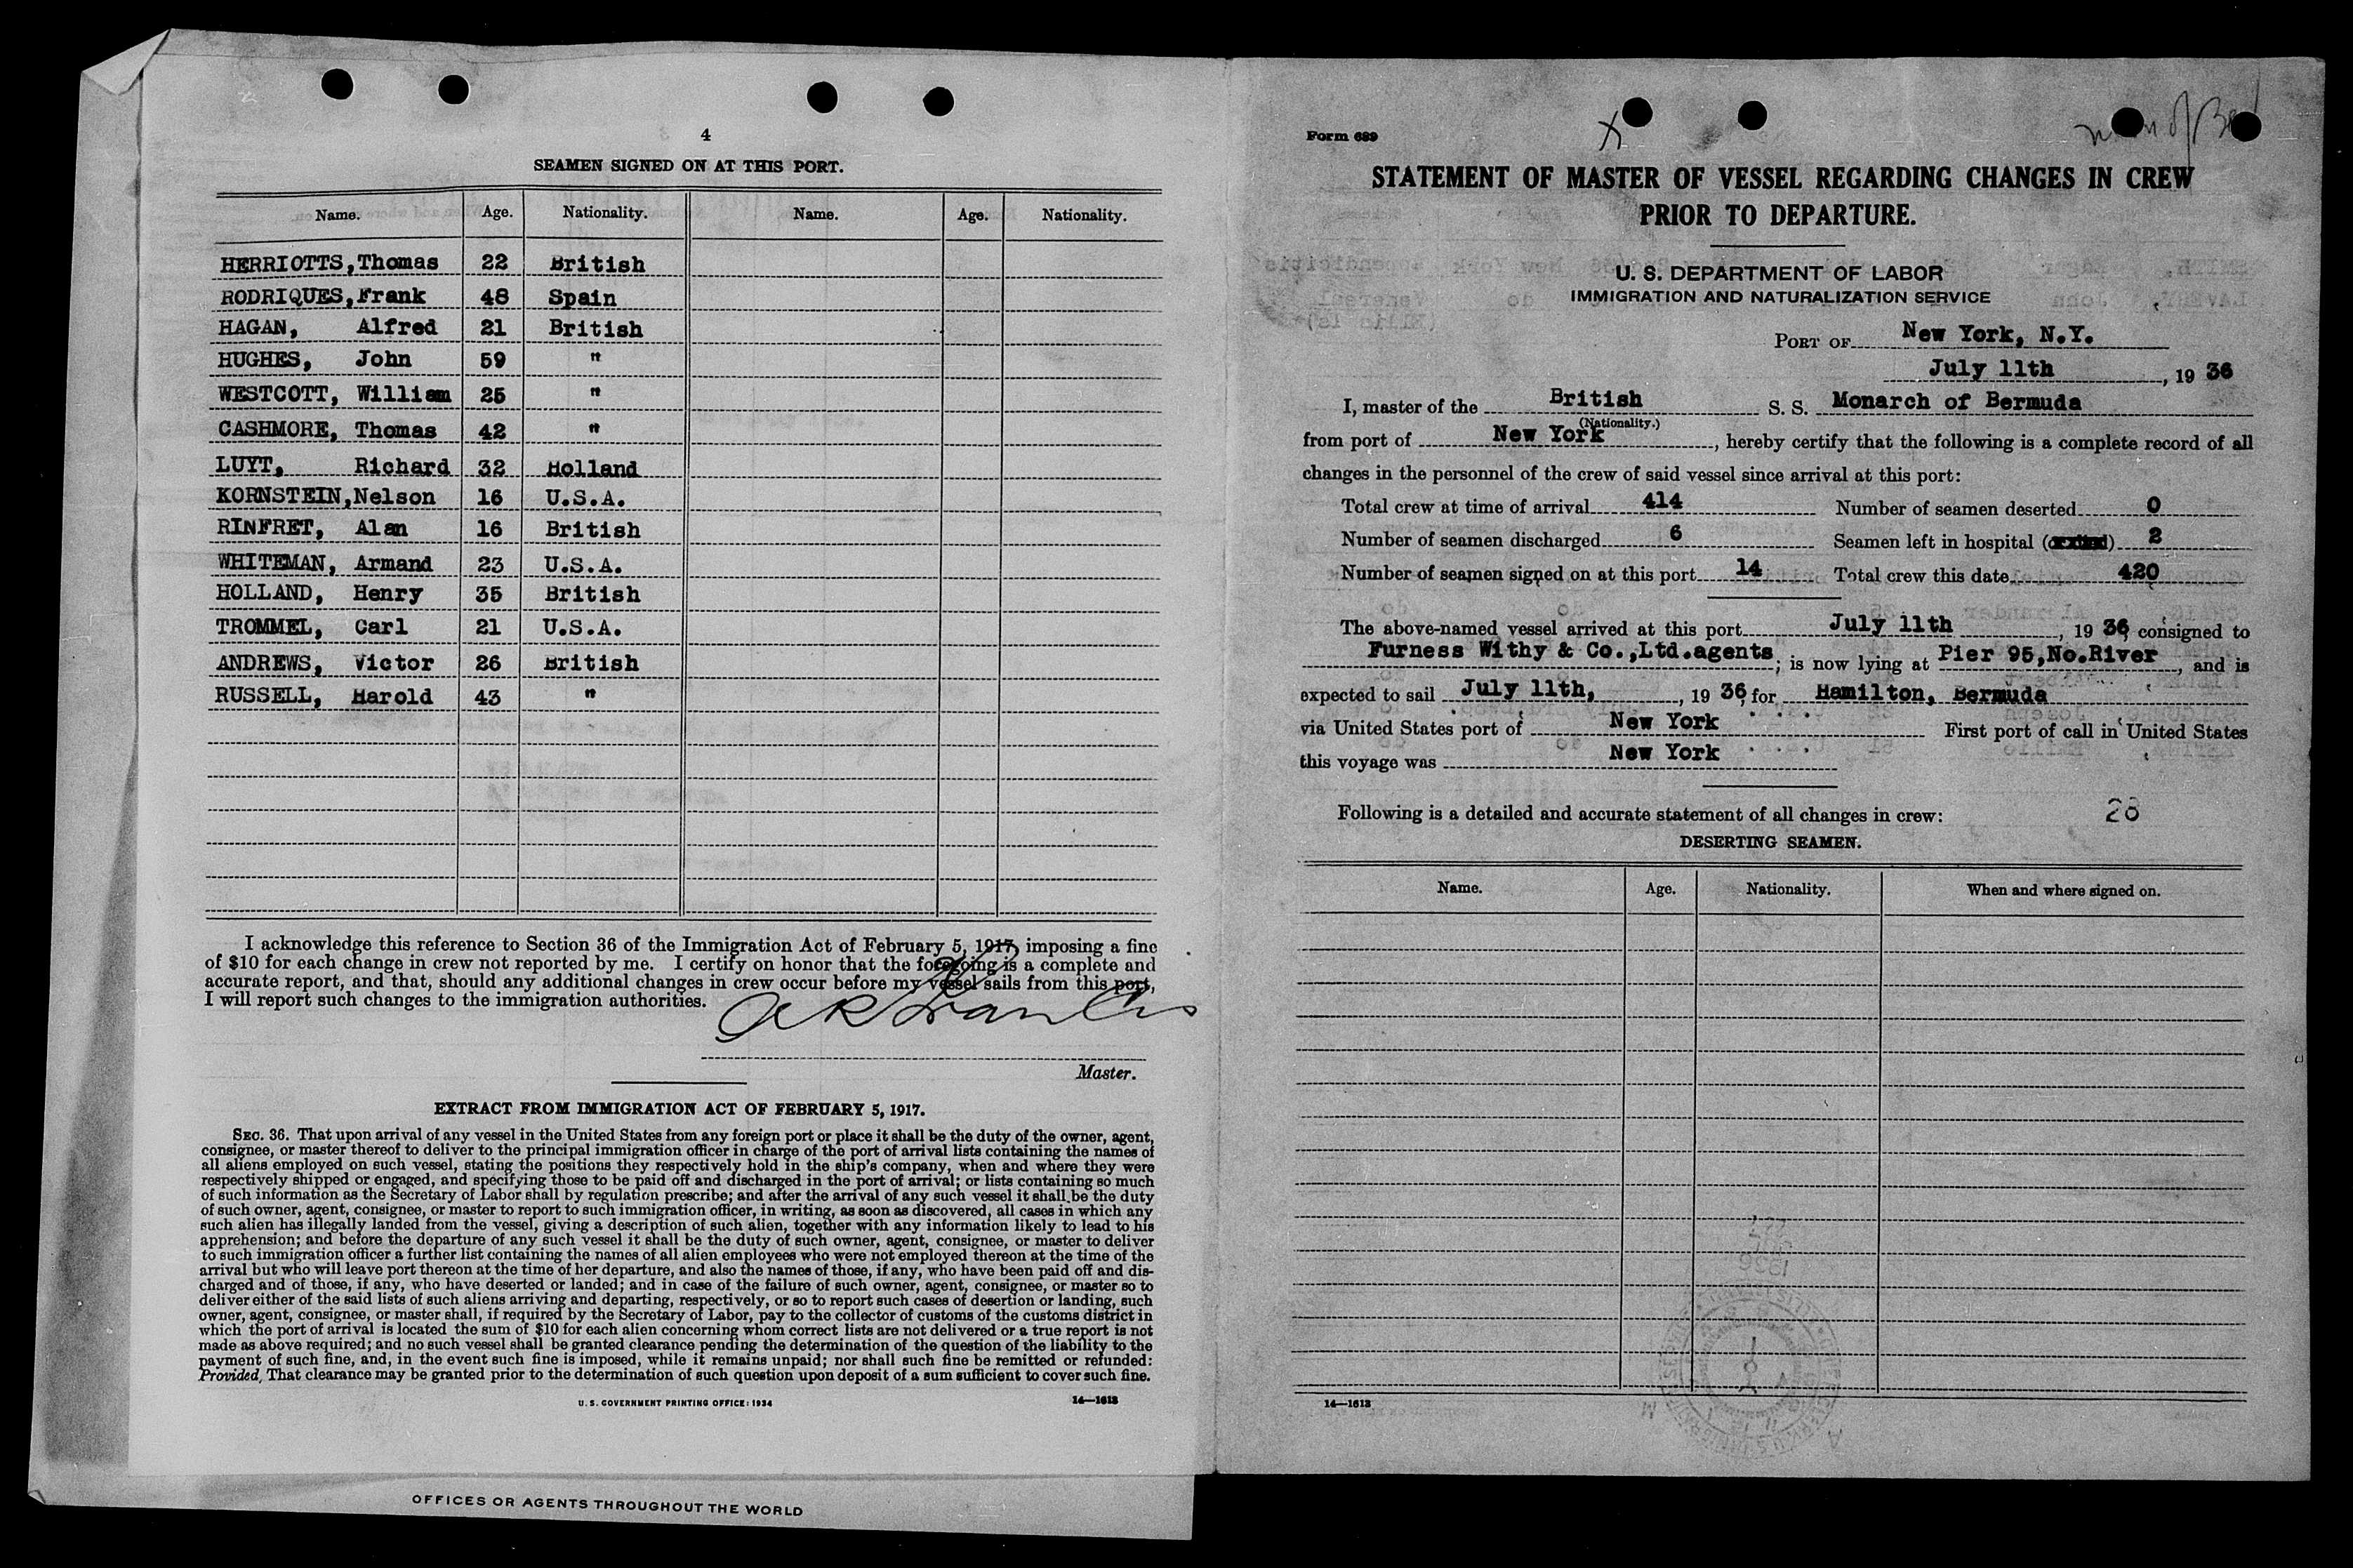 4
SEAMEN SIGNED ON AT THIS PORT.
Name. Age. Nationality. Name. Age. Nationality.
HERRIOTTS, Thomas 22 British
RODRIQUES, Frank 48 Spain
HAGAN, Alfred 21 British
HUGHES, John 59 "
WESTCOTT, William 25 "
CASHMORE, Thomas 42 "
LUYT, Richard 32 Holland
KORNSTEIN, Nelson 16 U.S.A.
RINFRET, Alan 16 British
WHITEMAN, Armand 23 U.S.A.
HOLLAND, Henry 35 British
TROMMEL, Carl 21 U.S.A.
ANDREWS, Victor 26 British
RUSSELL, Harold 43 "
I acknowledge this reference to Section 36 of the Immigration Act of February 5, 1917, imposing a fine
of $10 for each change in crew not reported by me. I certify on honor that the foregoing is a complete and
accurate report, and that, should any additional changes in crew occur before my vessel sails from this port,
I will report such changes to the immigration authorities.
Master.
EXTRACT FROM IMMIGRATION ACT OF FEBRUARY 5, 1917.
SEC. 36. That upon arrival of any vessel in the United States from any foreign port or place it shall be the duty of the owner, agent,
consignee, or master thereof to deliver to the principal immigration officer in charge of the port of arrival lists containing the names of
all aliens employed on such vessel, stating the positions they respectively hold in the ship's company, when and where they were
respectively shipped or engaged, and specifying those to be paid off and discharged in the port of arrival; or lists containing so much
of such information as the Secretary of Labor shall by regulation prescribe; and after the arrival of any such vessel it shall be the duty
of such owner, agent, consignee, or master to report to such immigration officer, in writing, as soon as discovered, all cases in which any
such alien has illegally landed from the vessel, giving a description of such alien, together with any information likely to lead to his
apprehension; and before the departure of any such vessel it shall be the duty of such owner, agent, consignee, or master to deliver
to such immigration officer a further list containing the names of all alien employees who were not employed thereon at the time of the
arrival but who will leave port thereon at the time of her departure, and also the names of those, if any, who have been paid off and dis-
charged and of those, if any, who have deserted or landed; and in case of the failure of such owner, agent, consignee, or master so to
deliver either of the said lists of such aliens arriving and departing, respectively, or so to report such cases of desertion or landing, such
owner, agent, consignee, or master shall, if required by the Secretary of Labor, pay to the collector of customs of the customs district in
which the port of arrival is located the sum of $10 for each alien concerning whom correct lists are not delivered or a true report is not
made as above required; and no such vessel shall be granted clearance pending the determination of the question of the liability to the
payment of such fine, and, in the event such fine is imposed, while it remains unpaid; nor shall such fine be remitted or refunded:
Provided, That clearance may be granted prior to the determination of such question upon deposit of a sum sufficient to cover such fine.
U. S. GOVERNMENT PRINTING OFFICE: 1934 14—1613
OFFICES OR AGENTS THROUGHOUT THE WORLD
Form 689
STATEMENT OF MASTER OF VESSEL REGARDING CHANGES IN CREW
PRIOR TO DEPARTURE.
U. S. DEPARTMENT OF LABOR
IMMIGRATION AND NATURALIZATION SERVICE
PORT OF New York, N.Y.
July 11th, 19 36
I, master of the British S. S. Monarch of Bermuda
(Nationality.)
from port of New York, hereby certify that the following is a complete record of all
changes in the personnel of the crew of said vessel since arrival at this port:
Total crew at time of arrival 414 Number of seamen deserted 0
Number of seamen discharged 6 Seamen left in hospital ( ) 2
Number of seamen signed on at this port 14 Total crew this date 420
The above-named vessel arrived at this port July 11th, 19 36, consigned to
Furness Withy & Co.,Ltd.agents; is now lying at Pier 95,No.River, and is
expected to sail July 11th, 19 36, for Hamilton, Bermuda
via United States port of New York First port of call in United States
this voyage was New York
Following is a detailed and accurate statement of all changes in crew: 28
DESERTING SEAMEN.
Name. Age. Nationality. When and where signed on.
14—1613